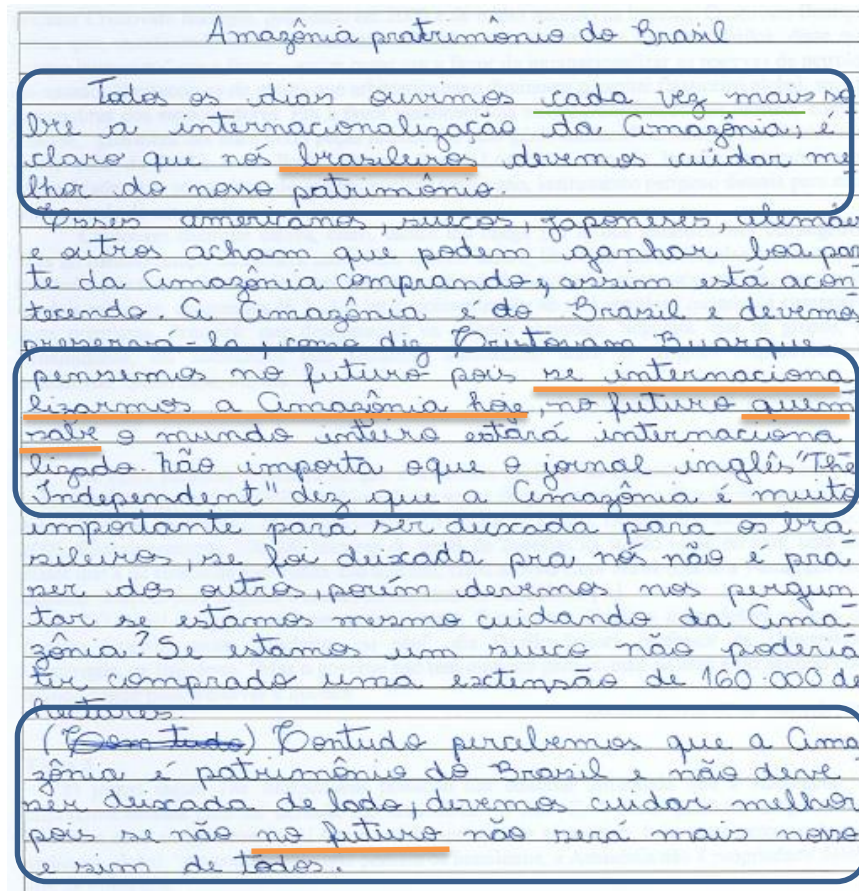 Amazônia pratrimônio do Brasil
Todos os dias ouvimos cada vez mais so
bre a internacionalização da Amazônia, é
claro que nós brasileiros devemos cuidar me
lhor do nosso patrimônio.
Esses americanos, suecos, japoneses, alemães
e outros acham que podem ganhar boa par
te da Amazônia comprando, assim está acon
tecendo. A Amazônia é do Brasil e devemos
preservá-la, como diz Cristovam Buarque
pensemos no futuro pois se internaciona
lizarmos a Amazônia hoje, no futuro quem
sabe o mundo inteiro estará internaciona
lizado. não importa oque o jornal inglês "The
Independent" diz que a Amazônia é muito
importante para ser deixada para os bra
sileiros, se foi deixada pra nós não é pra
ser dos outros, porém devemos nos pergun
tar se estamos mesmo cuidando da Ama
zônia? Se estamos um sueco não poderia
ter comprado uma extensão de 160.000 de
hectares.
(Com tudo) Contudo percebemos que a Ama
zônia é patrimônio do Brasil e não deve
ser deixada de lado, devemos cuidar melhor
pois se não no futuro não será mais nosso
e sim de todos.